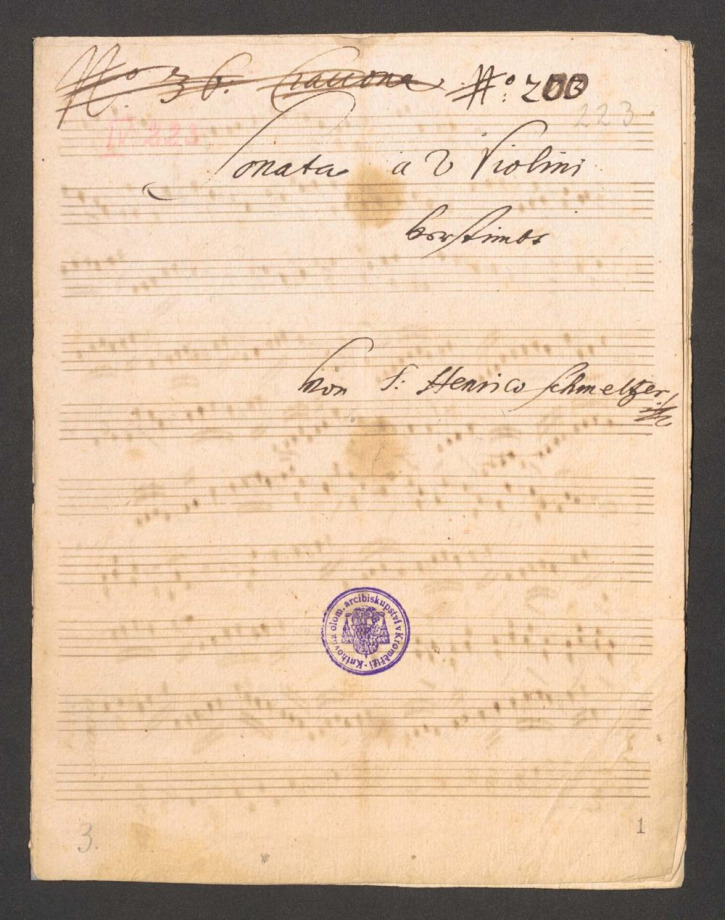 No. 36. Ciaccona. No: 200
223
IV 223
Sonata a 2 Violini
Verstimbt
Von S: Henrico Schmeltzer
Knihovna olom. arcibiskupství v Kroměříži
3.
1